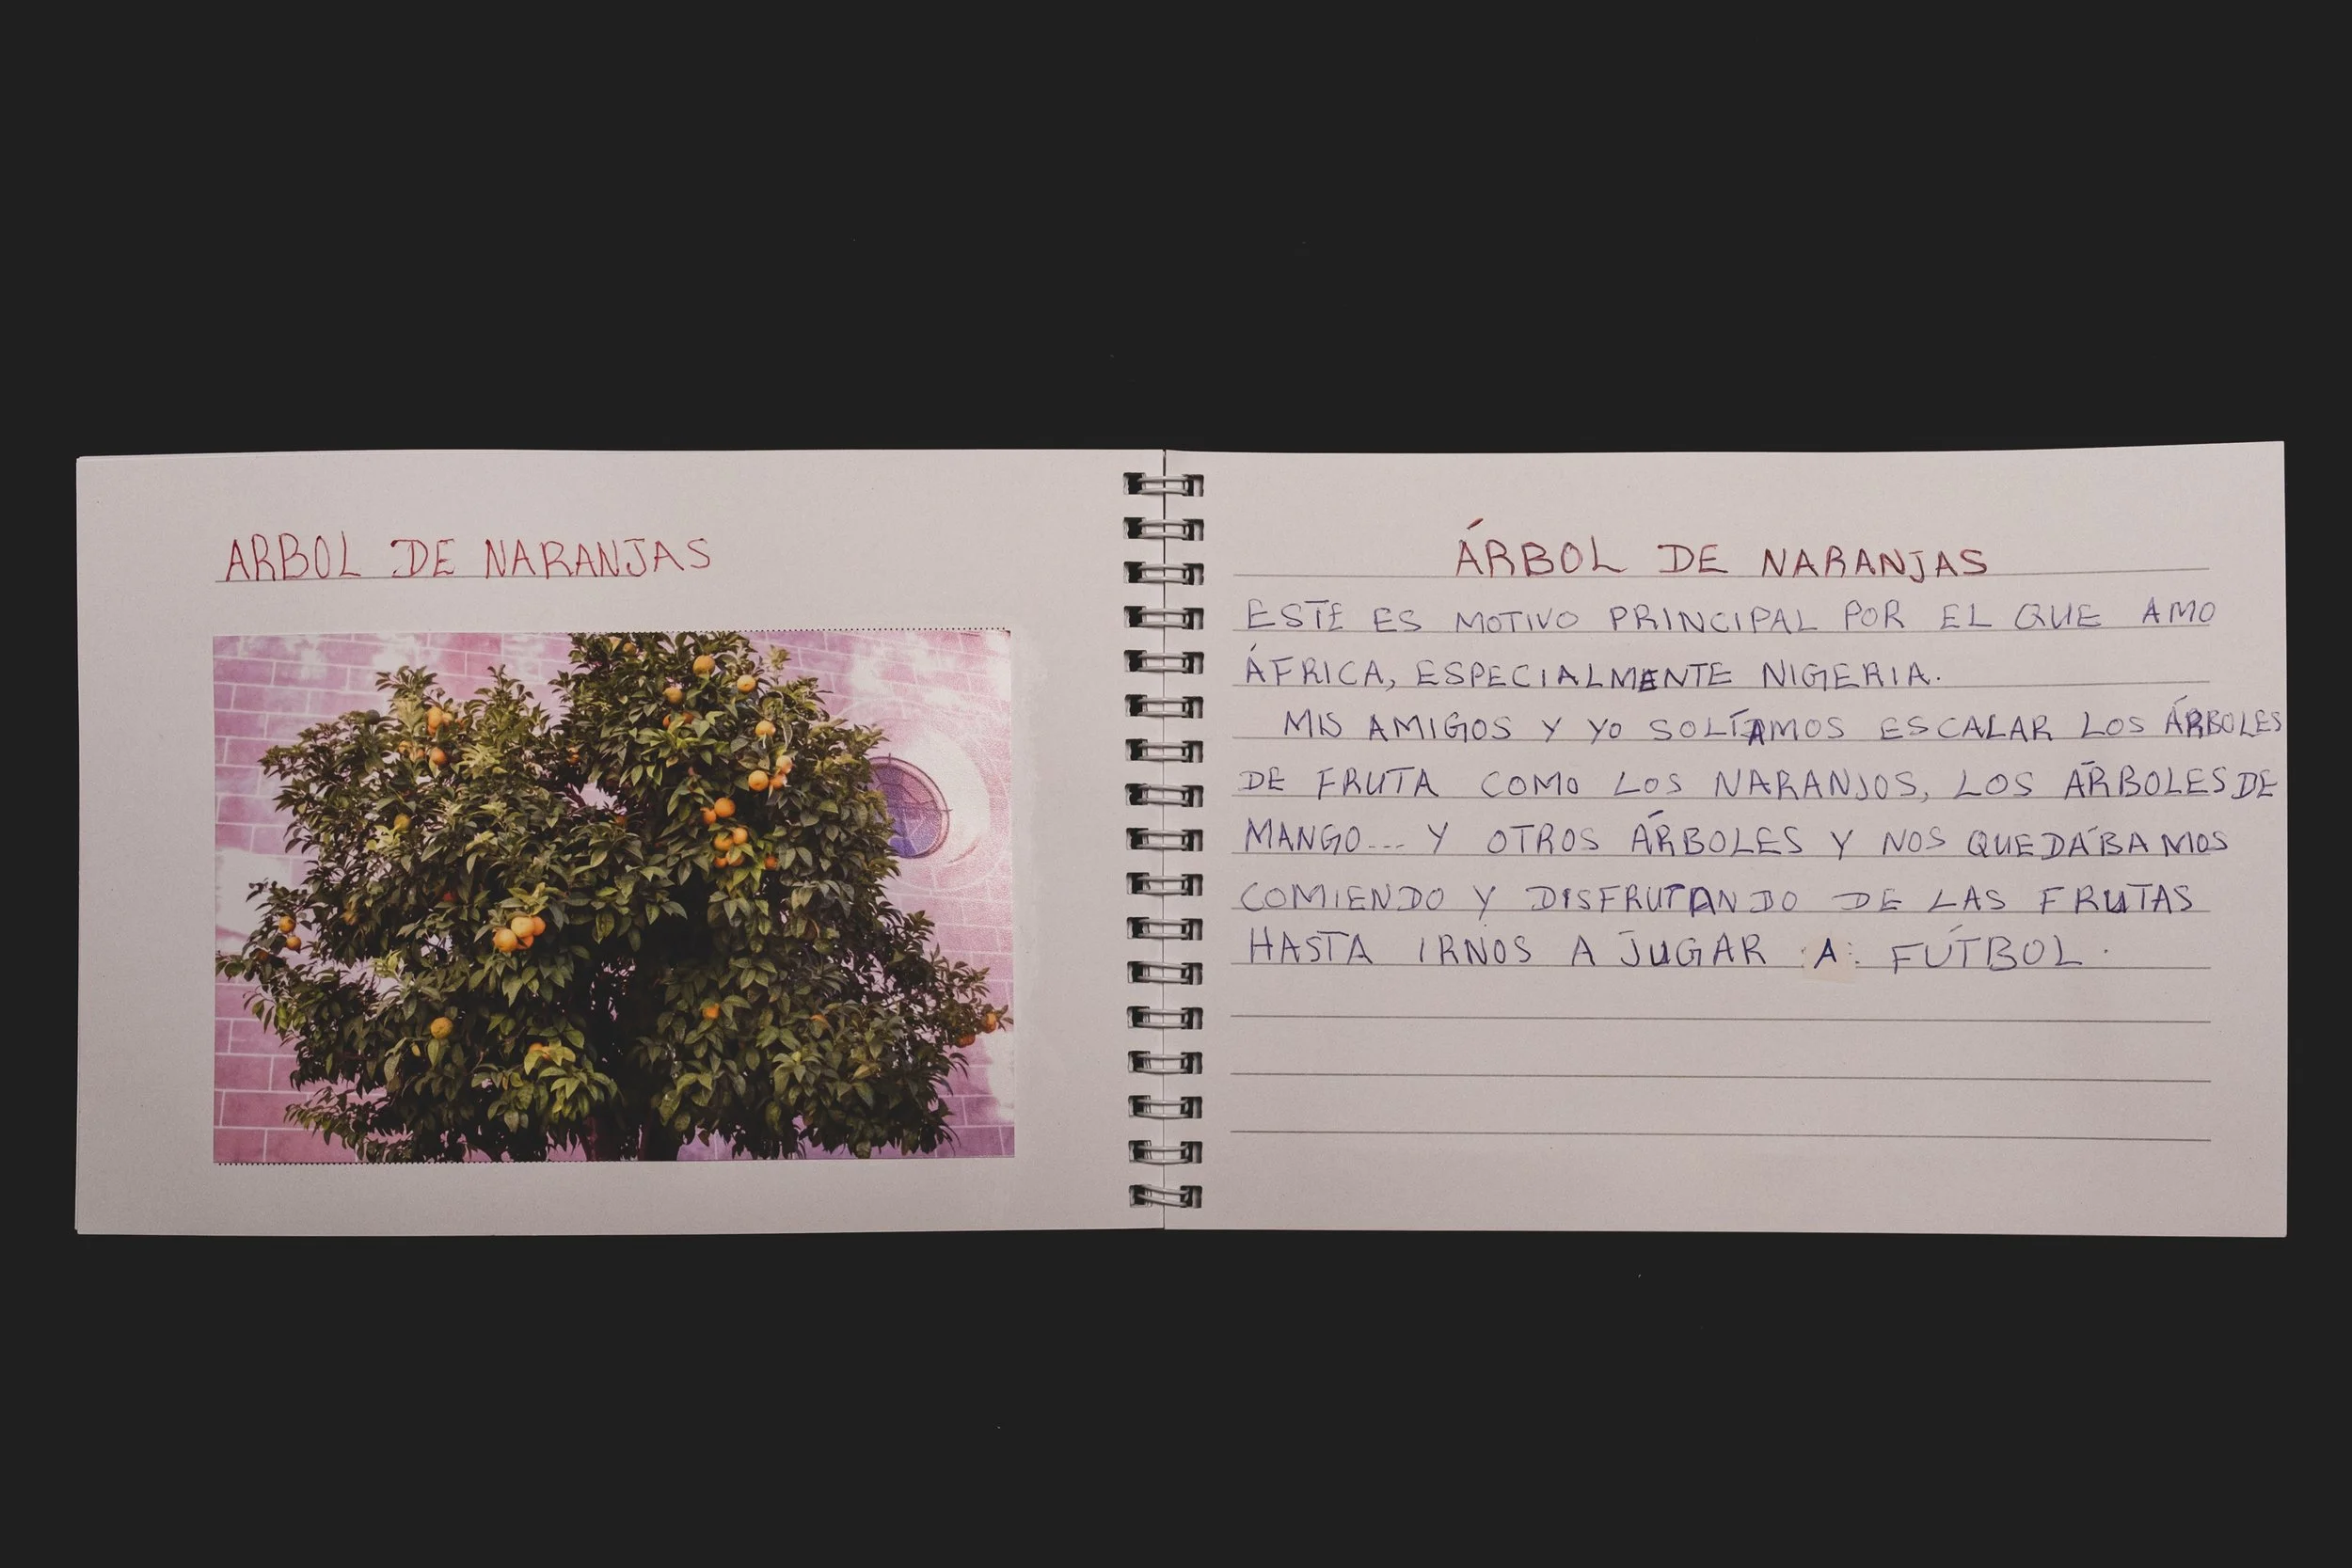 ARBOL DE NARANJAS
ÁRBOL DE NARANJAS
ESTE ES MOTIVO PRINCIPAL POR EL QUE AMO
ÁFRICA, ESPECIALMENTE NIGERIA.
MIS AMIGOS Y YO SOLÍAMOS ESCALAR LOS ÁRBOLES
DE FRUTA COMO LOS NARANJOS, LOS ÁRBOLES DE
MANGO... Y OTROS ÁRBOLES Y NOS QUEDÁBAMOS
COMIENDO Y DISFRUTANDO DE LAS FRUTAS
HASTA IRNOS A JUGAR A FÚTBOL.